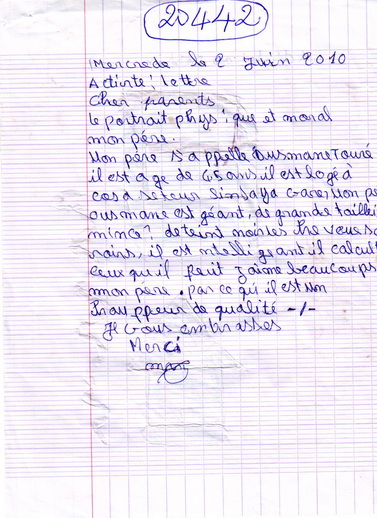 20442
Mercrede le 2 Juin 2010
Activité: lettre
Cher parents
le portrait physi'que et moral
mon père.
Mon père s'appelle Ousmane Touré
il est age de 45 ans il est logé à
cosa secteur Simbaya Gare Mon pe
ousmane est géant, de grande taille
mince? deteint
noirs, il est ntelligeant il calcul
ceux qu'il peut J'aime beaucoups
mon père. par ce qu'il est un
de qualité -/-
Je vous embrasses
Merci